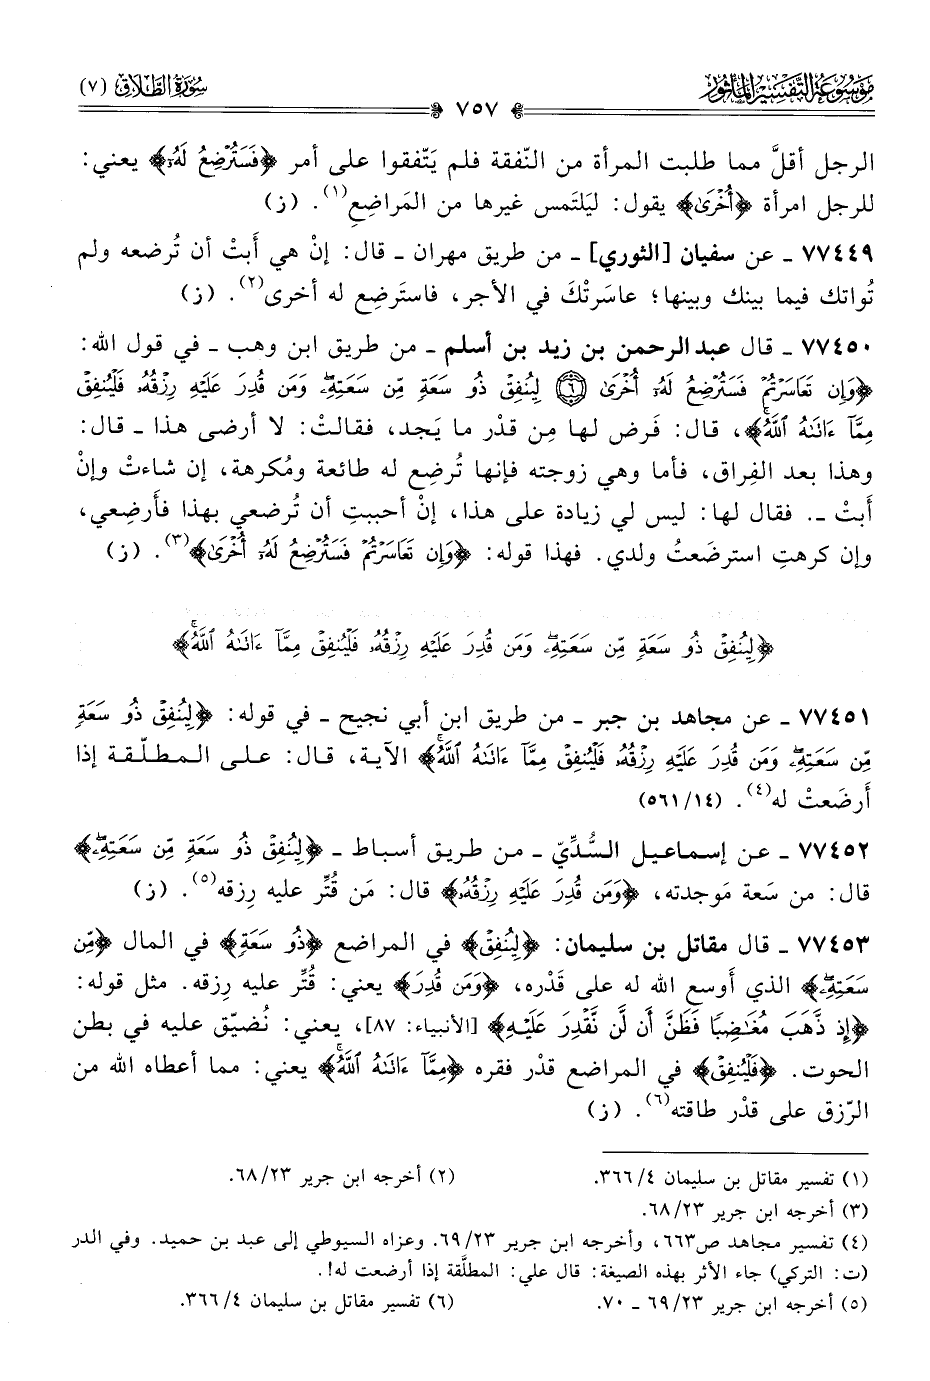 موسوعة التفسير المأثور
سورة الطلاق (٧)
٧٥٧
الرجل أقلَّ مما طلبت المرأة من النّفقة فلم يَتّفقوا على أمر ﴿فَسَتُرْضِعُ لَهُۥٓ﴾ يعني:
للرجل امرأة ﴿أُخْرَىٰ﴾ يقول: ليَلتَمس غيرها من المَراضِع(١). (ز)
٧٧٤٤٩ ـ عن سفيان [الثوري] ـ من طريق مهران ـ قال: إنْ هي أبَتْ أن تُرضعه ولم
تُواتك فيما بينك وبينها؛ عاسَرتْكَ في الأجر، فاستَرضِع له أخرى(٢). (ز)
٧٧٤٥٠ ـ قال عبد الرحمن بن زيد بن أسلم ـ من طريق ابن وهب ـ في قول الله:
﴿وَإِن تَعَاسَرْتُمْ فَسَتُرْضِعُ لَهُۥٓ أُخْرَىٰ ۝٦ لِيُنفِقْ ذُو سَعَةٍ مِّن سَعَتِهِۦۖ وَمَن قُدِرَ عَلَيْهِ رِزْقُهُۥ فَلْيُنفِقْ
مِمَّآ ءَاتَىٰهُ ٱللَّهُۚ﴾، قال: فَرض لها مِن قدْر ما يَجد، فقالتْ: لا أرضى هذا ـ قال:
وهذا بعد الفِراق، فأما وهي زوجته فإنها تُرضِع له طائعة ومُكرهة، إن شاءتْ وإنْ
أبتْ ـ. فقال لها: ليس لي زيادة على هذا، إنْ أحببتِ أن تُرضعي بهذا فأَرضِعي،
وإن كرهتِ استرضَعتُ ولدي. فهذا قوله: ﴿وَإِن تَعَاسَرْتُمْ فَسَتُرْضِعُ لَهُۥٓ أُخْرَىٰ﴾(٣). (ز)
﴿لِيُنفِقْ ذُو سَعَةٍ مِّن سَعَتِهِۦۖ وَمَن قُدِرَ عَلَيْهِ رِزْقُهُۥ فَلْيُنفِقْ مِمَّآ ءَاتَىٰهُ ٱللَّهُۚ﴾
٧٧٤٥١ ـ عن مجاهد بن جبر ـ من طريق ابن أبي نجيح ـ في قوله: ﴿لِيُنفِقْ ذُو سَعَةٍ
مِّن سَعَتِهِۦۖ وَمَن قُدِرَ عَلَيْهِ رِزْقُهُۥ فَلْيُنفِقْ مِمَّآ ءَاتَىٰهُ ٱللَّهُۚ﴾ الآية، قال: على المطلّقة إذا
أرضَعتْ له(٤). (٥٦١/١٤)
٧٧٤٥٢ ـ عن إسماعيل السُّدِّيّ ـ من طريق أسباط ـ ﴿لِيُنفِقْ ذُو سَعَةٍ مِّن سَعَتِهِۦۖ﴾
قال: من سَعة مَوجدته، ﴿وَمَن قُدِرَ عَلَيْهِ رِزْقُهُۥ﴾ قال: مَن قُتِّر عليه رِزقه(٥). (ز)
٧٧٤٥٣ ـ قال مقاتل بن سليمان: ﴿لِيُنفِقْ﴾ في المراضع ﴿ذُو سَعَةٍ﴾ في المال ﴿مِّن
سَعَتِهِۦۖ﴾ الذي أَوسع الله له على قَدْره، ﴿وَمَن قُدِرَ﴾ يعني: قُتِّر عليه رِزقه. مثل قوله:
﴿إِذ ذَّهَبَ مُغَٰضِبًا فَظَنَّ أَن لَّن نَّقْدِرَ عَلَيْهِ﴾ [الأنبياء: ٨٧]، يعني: نُضيّق عليه في بطن
الحوت. ﴿فَلْيُنفِقْ﴾ في المراضع قدْر فقره ﴿مِمَّآ ءَاتَىٰهُ ٱللَّهُۚ﴾ يعني: مما أعطاه الله من
الرّزق على قدْر طاقته(٦). (ز)
(١) تفسير مقاتل بن سليمان ٣٦٦/٤.
(٢) أخرجه ابن جرير ٦٨/٢٣.
(٣) أخرجه ابن جرير ٦٨/٢٣.
(٤) تفسير مجاهد ص٦٦٣، وأخرجه ابن جرير ٦٩/٢٣. وعزاه السيوطي إلى عبد بن حميد. وفي الدر
(ت: التركي) جاء الأثر بهذه الصيغة: قال علي: المطلَّقة إذا أرضعت له!.
(٥) أخرجه ابن جرير ٦٩/٢٣ ـ ٧٠.
(٦) تفسير مقاتل بن سليمان ٣٦٦/٤.